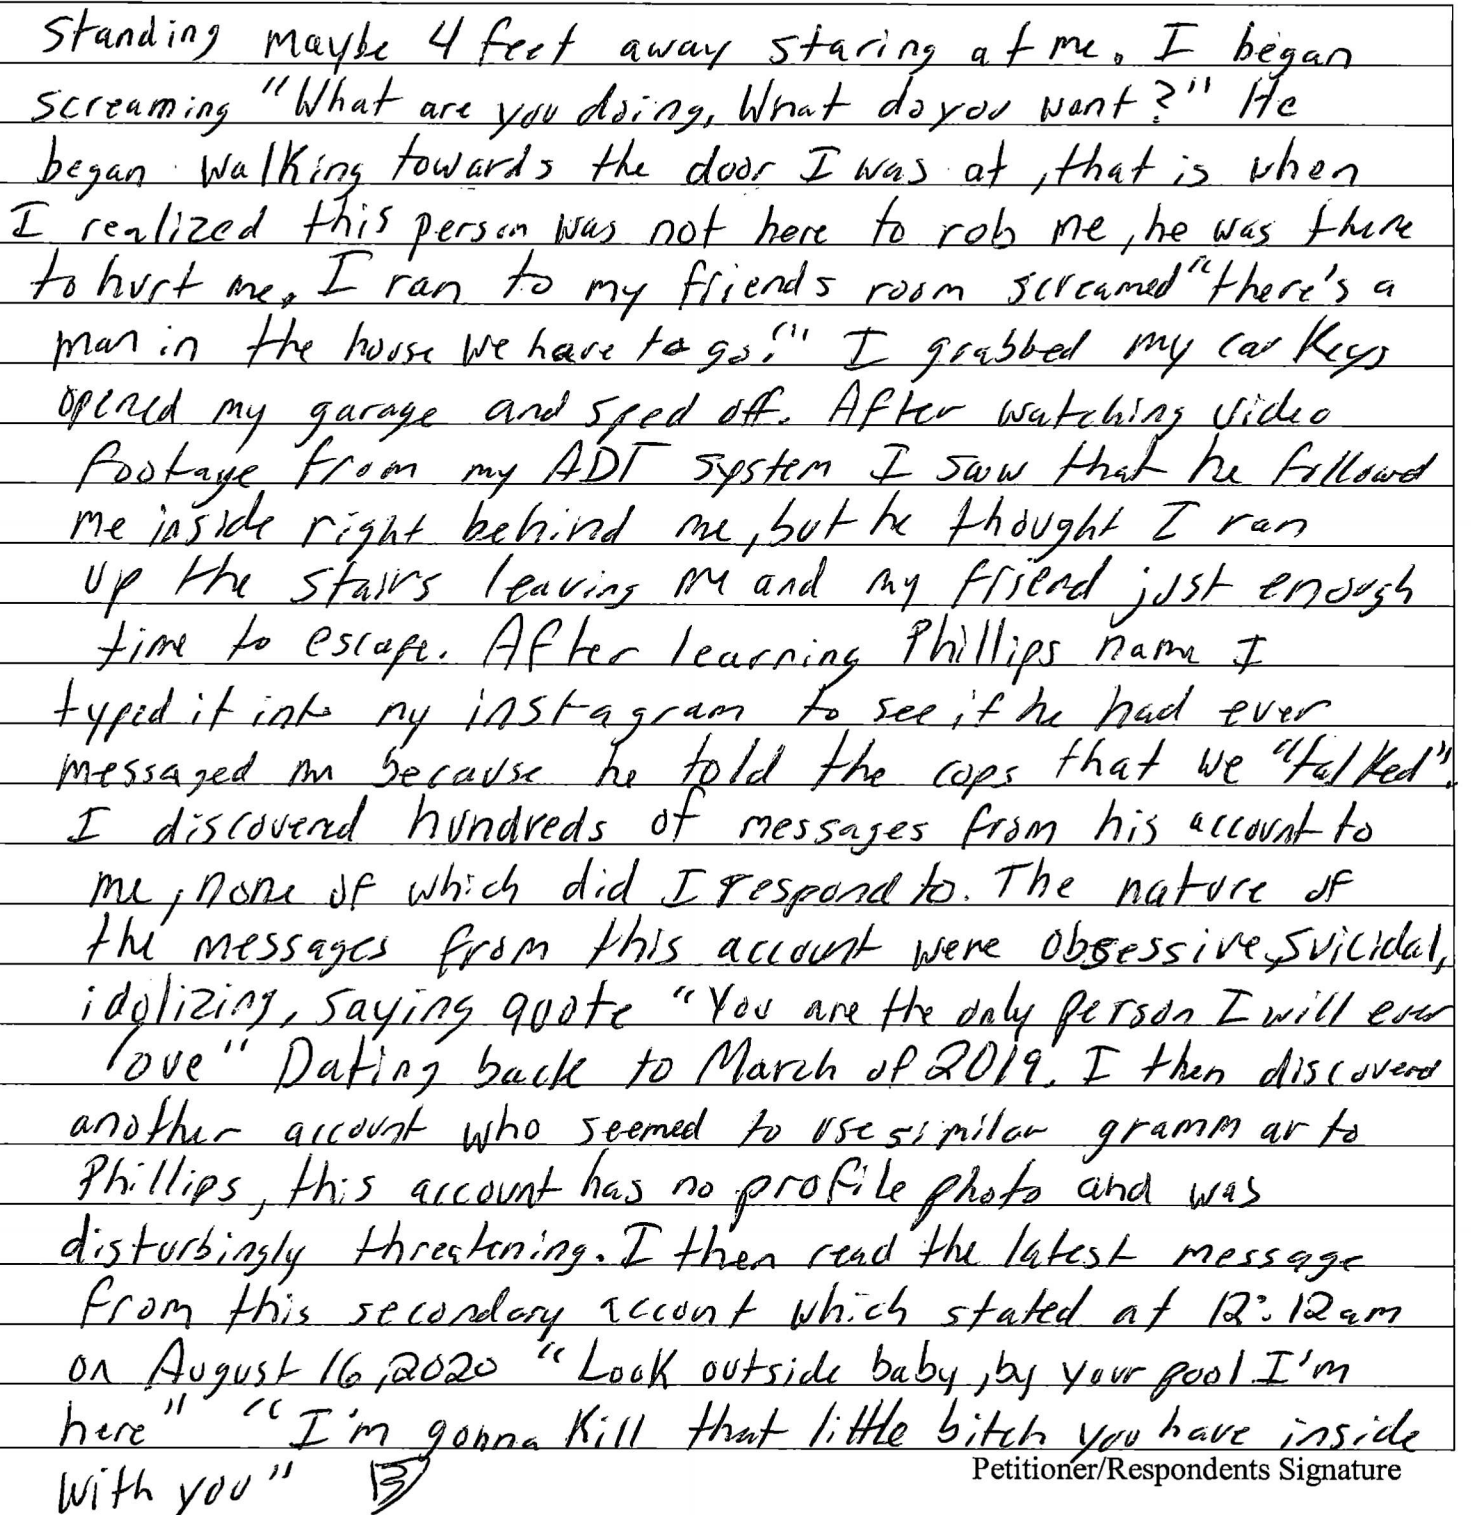 Standing maybe 4 feet away staring at me. I began
screaming "What are you doing, What do you want?" He
began walking towards the door I was at, that is when
I realized this person was not here to rob me, he was there
to hurt me. I ran to my friends room screamed "there's a
man in the house we have to go!" I grabbed my car keys
opened my garage and sped off. After watching video
footage from my ADT system I saw that he followed
me inside right behind me, but he thought I ran
up the stairs leaving me and my friend just enough
time to escape. After learning Phillips name I
typed it into my instagram to see if he had ever
messaged me because he told the cops that we "talked".
I discovered hundreds of messages from his account to
me, none of which did I respond to. The nature of
the messages from this account were obsessive, suicidal,
idolizing, saying quote "You are the only person I will ever
love" Dating back to March of 2019. I then discovered
another account who seemed to use similar grammar to
Phillips, this account has no profile photo and was
disturbingly threatening. I then read the latest message
from this secondary account which stated at 12:12am
on August 16, 2020 "Look outside baby, by your pool I'm
here" "I'm gonna kill that little bitch you have inside
with you"
Petitioner/Respondents Signature